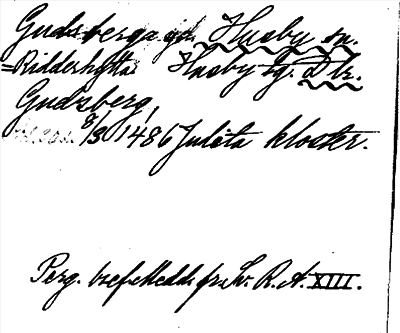 Gudsberga gd. Husby sn.
=Riddarhytta Husby tg. Dlr.
Gudsberg,
8/3 1486 Julita kloster.
Perg. bref. Medd. fr. Sv. R. A. XIII.